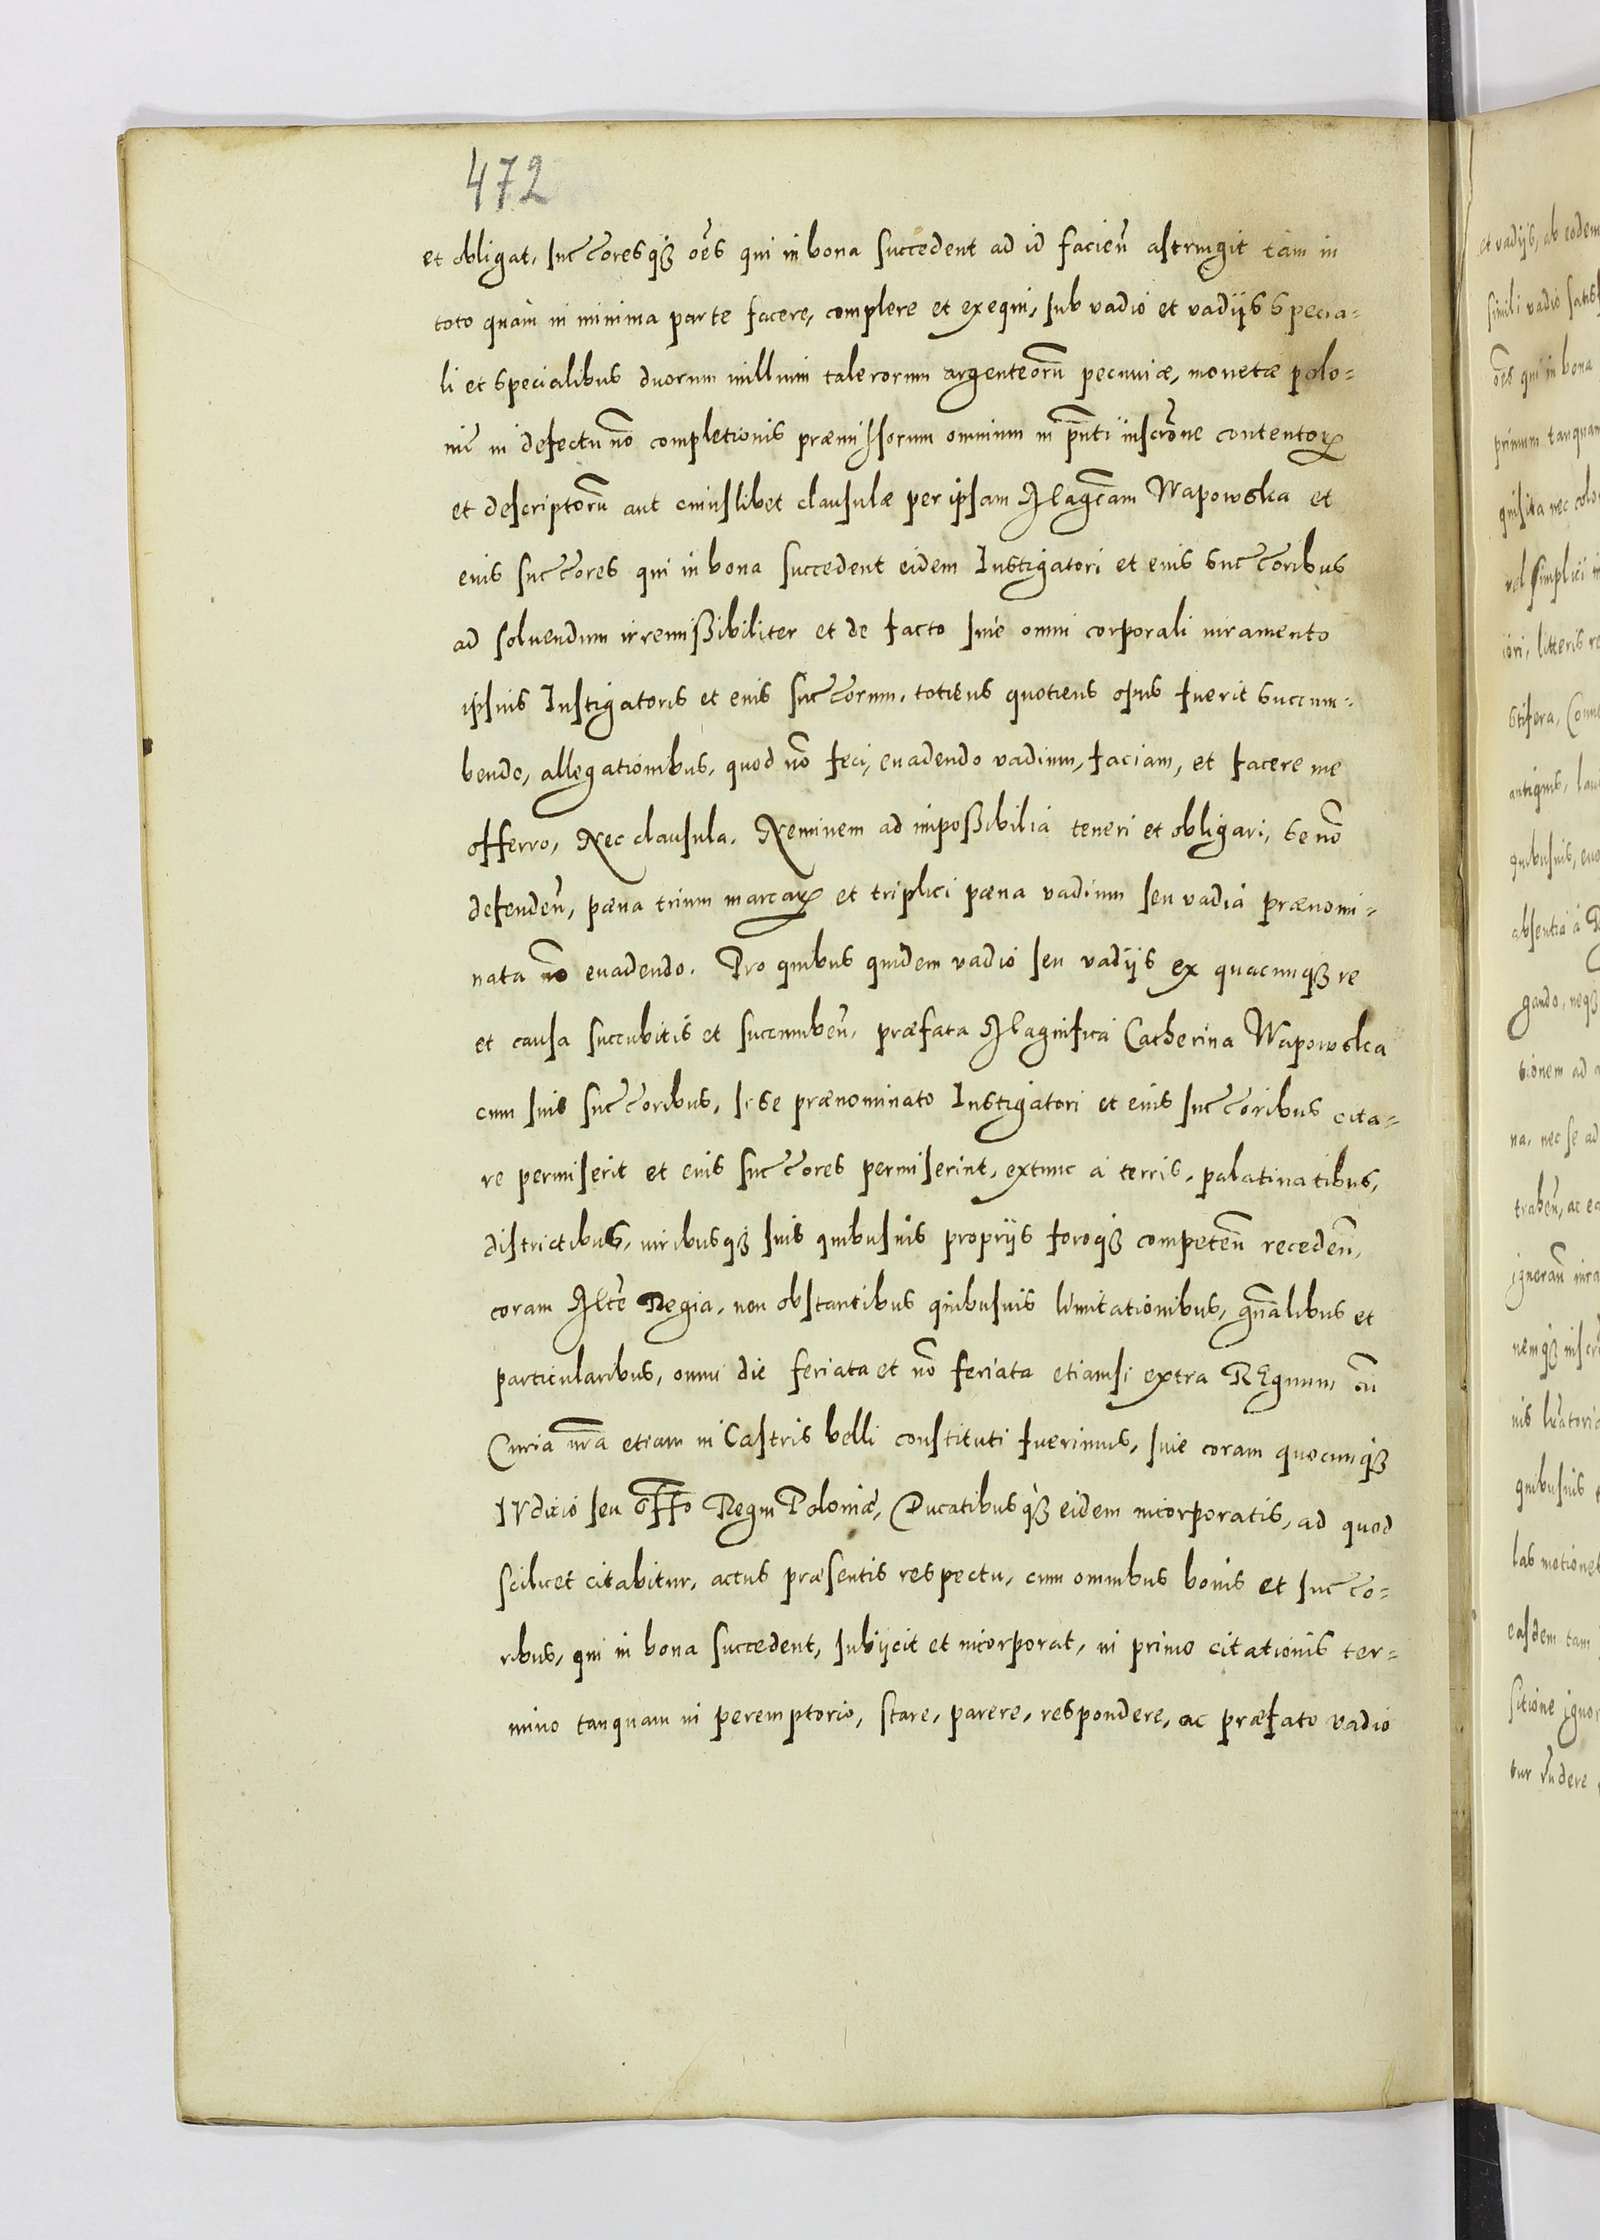 472
et obligat, succ̃oresqꝫ oẽs qui in bona succedent ad id facieñ astringit tam in
toto quàm in minima parte facere, complere et exequi, sub vadio et vadijs specia-
li et specialibus duorum millium talerorum argenteorũ pecuniæ, monetæ polo-
niẽ in defectu nõ completionis præmissorum omnium in pñti inscrõne contentorꝝ
et descriptorũ aut cuiuslibet clausulæ per ipsam Magcãm Wapowska et
eius succ̃ores qui in bona succedent eidem Instigatori et eius succ̃oribus
ad soluendum irremißibiliter et de facto sine omni corporali iuramento
ipsius Instigatoris et eius succ̃orum, totiens quotiens opus fuerit succum-
bendo, allegationibus, quod nõ feci, euadendo vadium, faciam, et facere me
offerro, Nec clausula, Neminem ad impoßibilia teneri et obligari, se nõ
defendeñ, pæna trium marcarꝝ et triplici pæna vadium seu vadia prænomi-
nata nõ euadendo. Pro quibus quidem vadio seu vadijs ex quacunqꝫ re
et causa succubitis et succumbeñ, præfata Magnifica Catherina Wapowska
cum suis succ̃oribus, si se prænominato Instigatori et eius succ̃oribus cita-
re permiserit et eius succ̃ores permiserint, extunc à terris, palatinatibus,
districtibus, iuribusqꝫ suis quibusuis proprijs foroqꝫ competeñ recedeñ,
coram Mtẽ Regia, non obstantibus quibusuis limitationibus, gnãlibus et
particularibus, omni die feriata et nõ feriata etiamsi extra REgnum, cũ
Curia nrã etiam in Castris belli constituti fuerimus, siue coram quocunqꝫ
IVdicio seu offo Regni Poloniæ, Ducatibusqꝫ eidem incorporatis, ad quod
scilicet citabitur, actus præsentis respectu, cum omnibus bonis et succ̃o-
ribus, qui in bona succedent, subijcit et incorporat, in primo citationis ter-
mino tanquam in peremptorio, stare, parere, respondere, ac præfato vadio
et vadijs, ab eodem
simili vadio
oẽs qui in bona
primum tanquam
quisita nec
vel simplici
iori, litteris
stifera,
antiquis,
quibusuis,
absentia à
gando, neqꝫ
tionem ad
na, nec se ad
traheñ, ac
ignorañ
nemqꝫ
nis
quibusuis
las motiones
easdem tam
sitione
tur rñdere